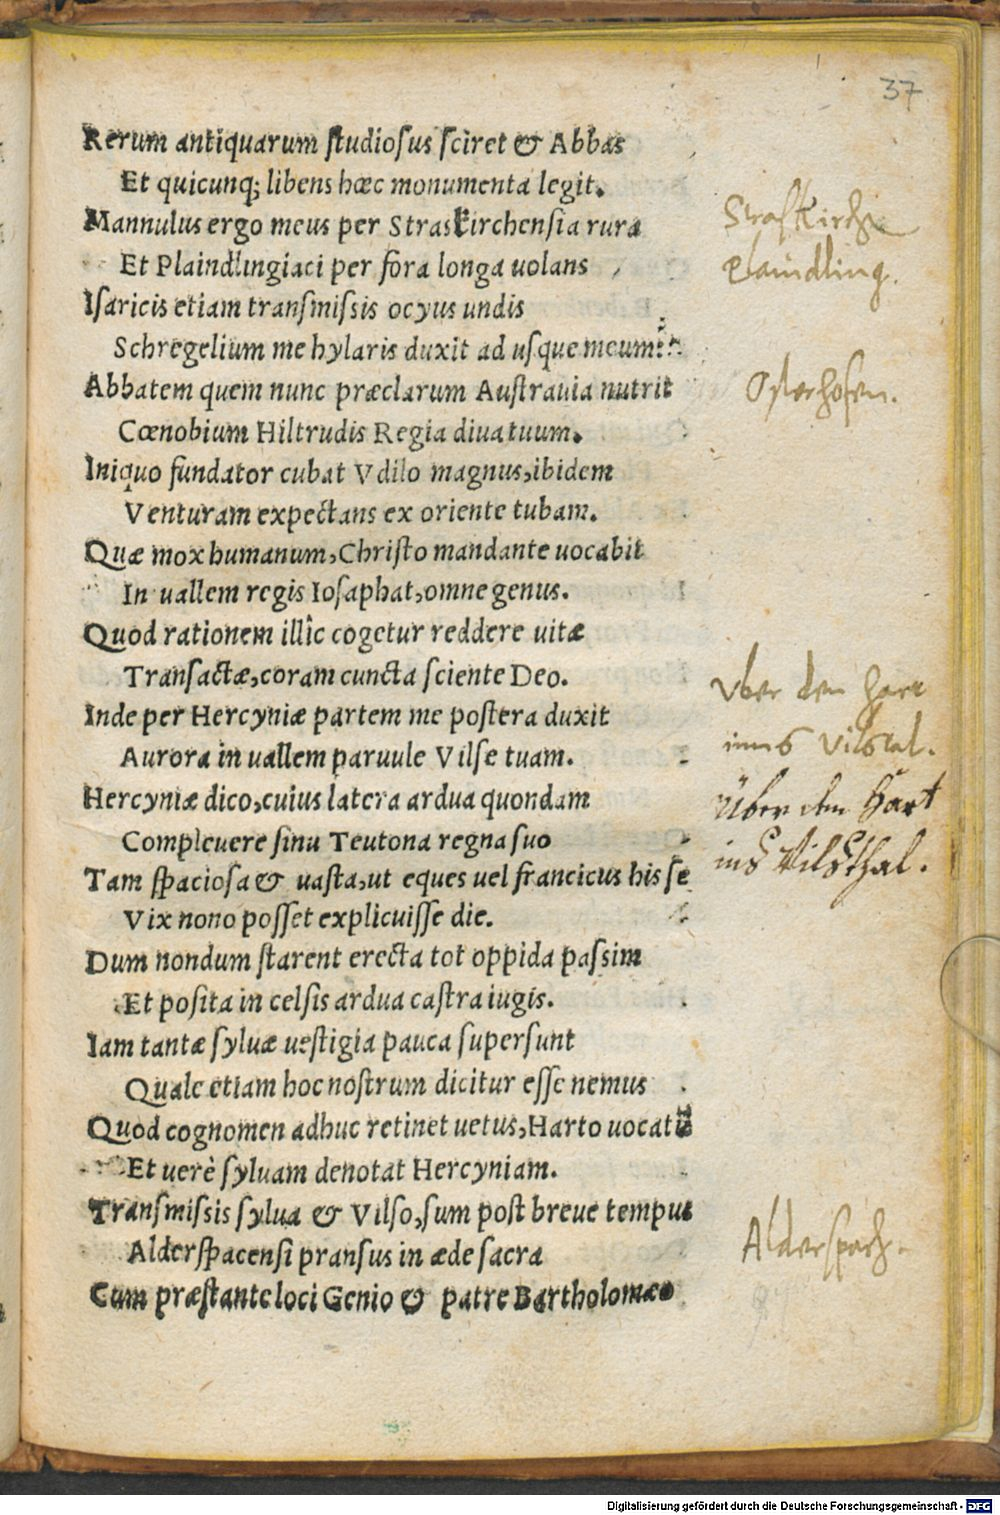 37
Rerum antiquarum studiosus sciret & Abbas
Et quicunq; libens hæc monumenta legit.
Mannulus ergo meus per Straskirchensia rura
Straskirch
Et Plaindlingiaci per fora longa uolans
Plaindling.
Isaricis etiam transmissis ocyus undis
Schregelium me hylaris duxit ad usque meum:
Abbatem quem nunc præclarum Austrauia nutrit
Osterhofen.
Cœnobium Hiltrudis Regia diua tuum.
Iniquo fundator cubat Vdilo magnus, ibidem
Venturam expectans ex oriente tubam.
Quæ mox humanum, Christo mandante uocabit
In uallem regis Iosaphat, omne genus.
Quod rationem illîc cogetur reddere uitæ
Transactæ, coram cuncta sciente Deo.
Vber den Hart
Inde per Hercyniæ partem me postera duxit
Aurora in uallem paruule Vilse tuam.
inns Vilstal.
Hercyniæ dico, cuius latera ardua quondam
Über den Hart
Compleuere sinu Teutona regna suo
ins Vilsthal.
Tam spaciosa & uasta, ut eques uel francicus his se
Vix nono posset explicuisse die.
Dum nondum starent erecta tot oppida passim
Et posita in celsis ardua castra iugis.
Iam tantæ syluæ uestigia pauca supersunt
Quale etiam hoc nostrum dicitur esse nemus
Quod cognomen adhuc retinet uetus, Harto uocatū
Et uerè syluam denotat Hercyniam.
Transmissis sylua & Vilso, sum post breue tempus
Alderspacensi pransus in æde sacra
Alderspach.
Cum præstante loci Genio & patre Bartholomæo
Digitalisierung gefördert durch die Deutsche Forschungsgemeinschaft - DFG